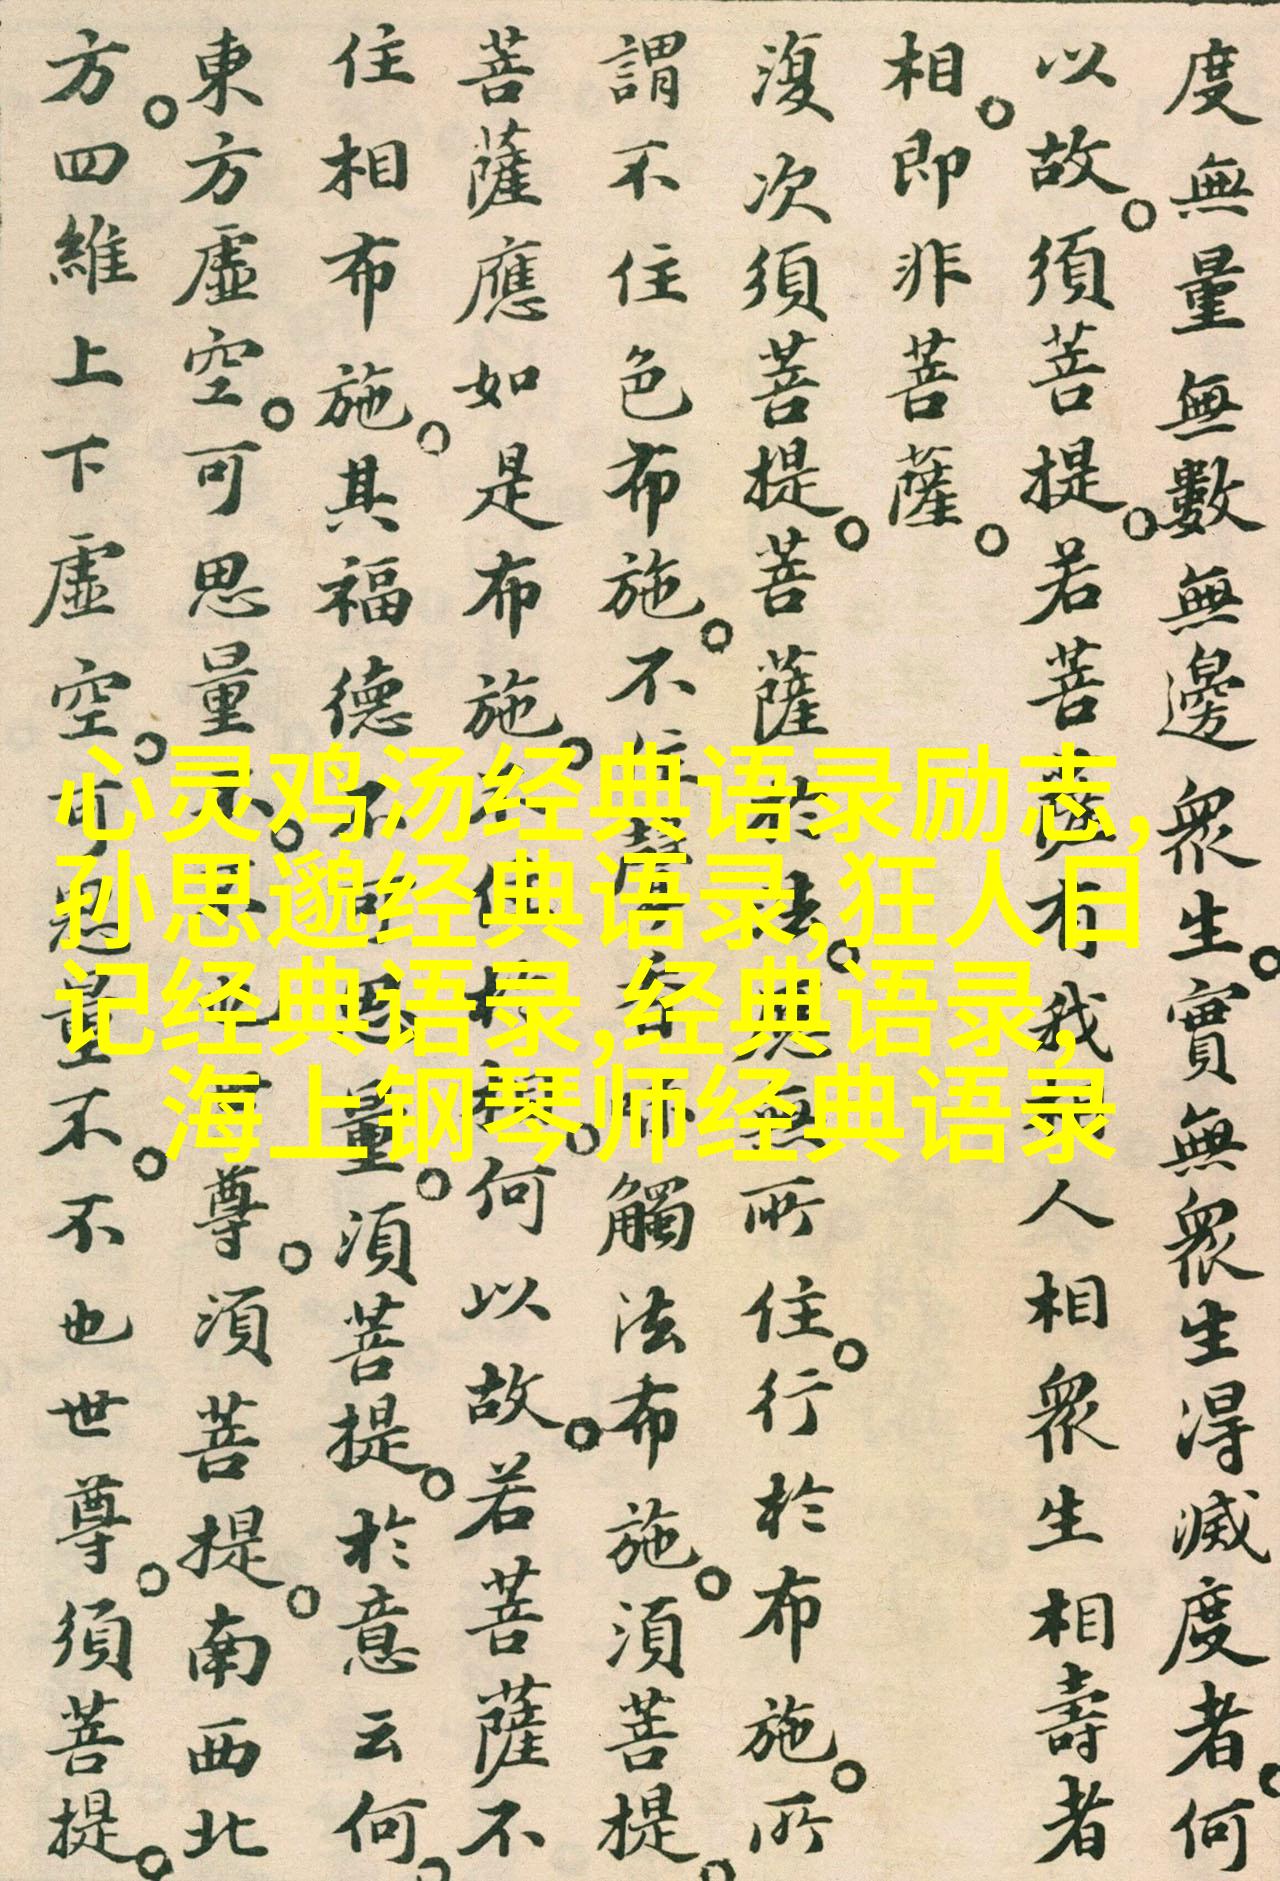 度無量無數無邊眾生。實無眾生得滅度者。何
以故。須菩提。若菩薩有我相人相眾生相壽者
相。即非菩薩。
復次須菩提。菩薩於法。應無所住。行於布施。所
謂不住色布施。不住聲香味觸法布施。須菩提。
菩薩應如是布施。不住於相。何以故。若菩薩不
住相布施。其福德不可思量。須菩提。於意云何。
東方虛空。可思量不。不也世尊。須菩提。南西北
方。四維上下虛空。可思量不。不也世尊。須菩提。
心灵鸡汤经典语录励志,
孙思邈经典语录,狂人日
记经典语录,经典语录,
海上钢琴师经典语录